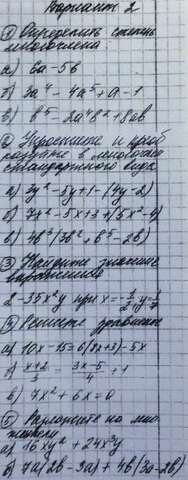 Вариант 2
① Определить степень
многочлена
а) 6a - 5b
б) 3a⁴ - 4a⁵ + a - 1
в) b⁵ - 2a⁴b² + 8ab
② Упростить и
в многочлен
стандартного вида
а) 3y² - 5y + 1 - (4y - 2)
б) 7x² - 5x + 3 + (5x² - 4)
в) 4b³(3b² + b⁵ - 2b)
③ Найдите значение
выражения
2 - 35x²y при x = -1/2, y = 1/7
④ Решите уравнение
а) 10x - 15 = 6(8x + 3) - 5x
б) (x+2)/3 = (3x-5)/4 + 1
в) 7x² + 6x = 0
⑤ Разложить на мно-
жители
а) 16xy² + 24x²y
б) 7a(2b - 3a) + 4b(3a - 2b)